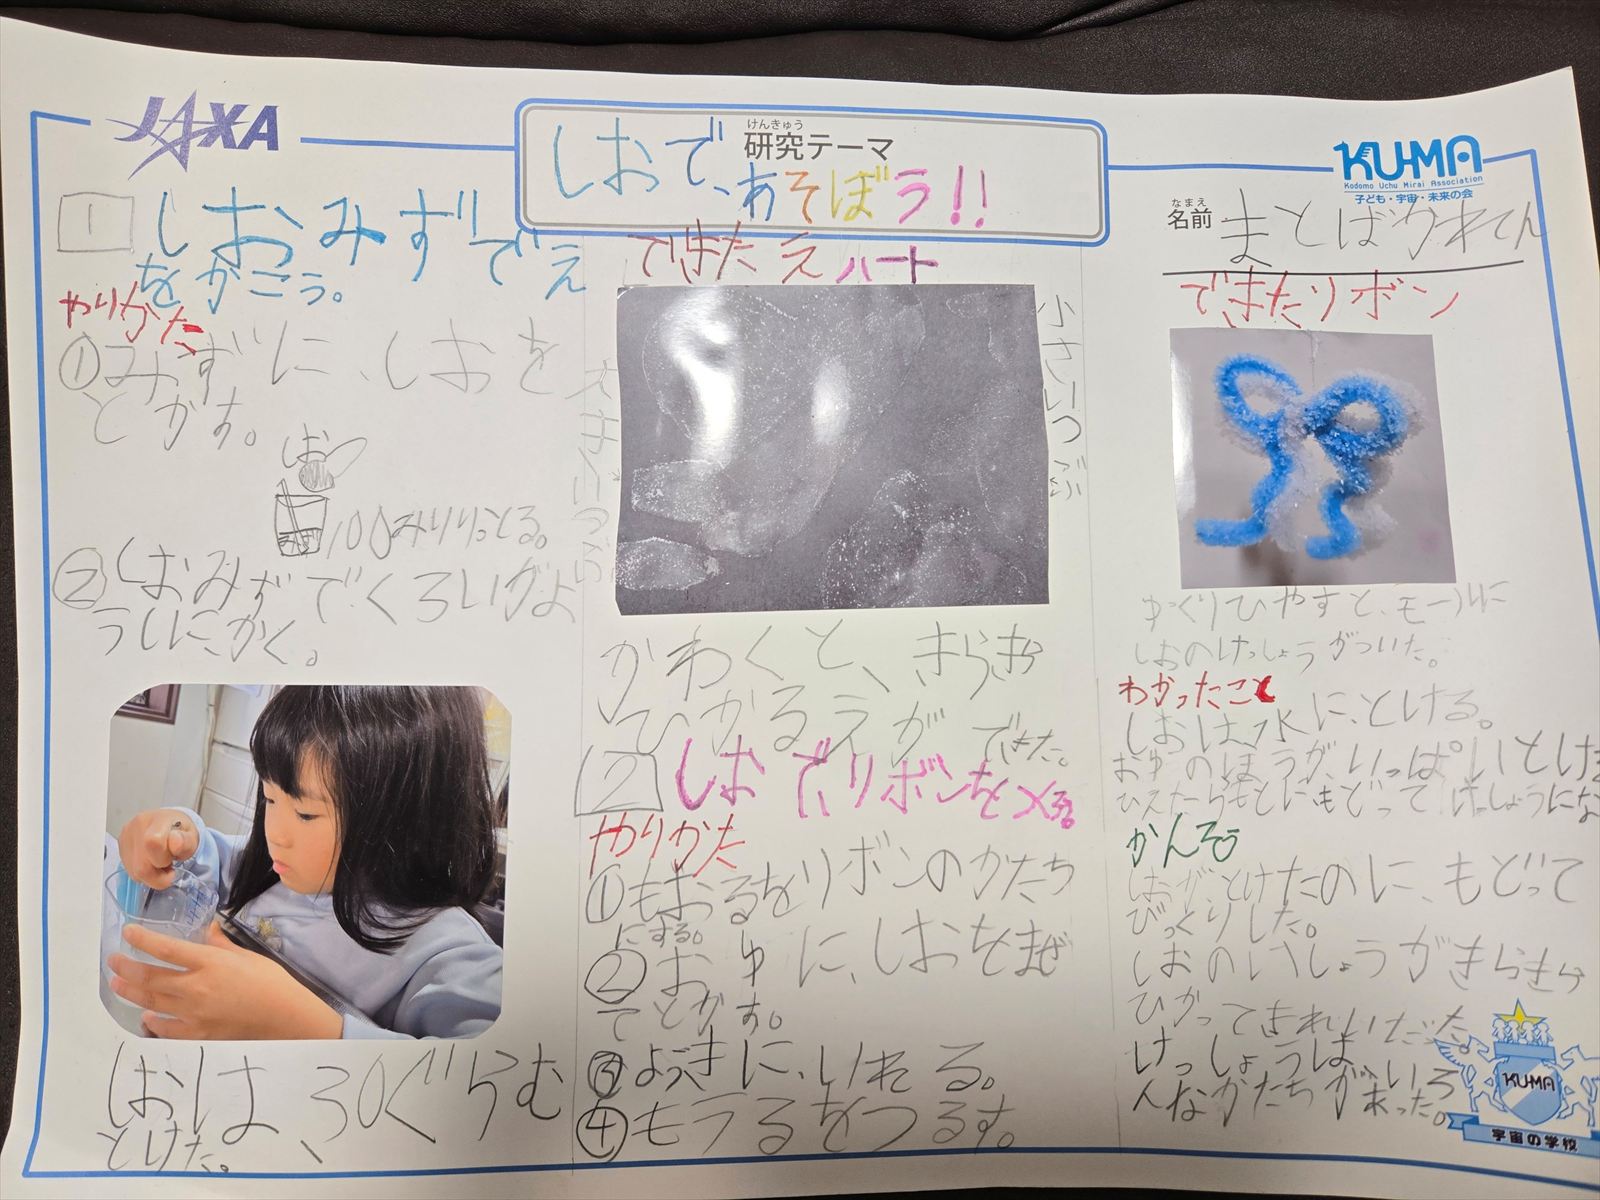 JAXA
けんきゅう
研究テーマ
しおで、あそぼう!!
KU-MA
Kodomo Uchu Mirai Association
子ども・宇宙・未来の会
なまえ
名前
1
しおみずでえ
をかこう。
やりかた
①みずに、しおを
とかす。
しお
100みりりっとる。
②しおみずでくろいがよ
うしにかく。
しおは、30ぐらむ
とけた。
できたえ ハート
大きいつぶ
小さいつぶ
かわくと、きらきら
ひかるえができた。
2 しおで、リボンを
やりかた
①もおるをリボンのかたち
にする。
②おゆに、しおをまぜ
てとかす。
③ようきに、いれる。
④もうるをつるす。
できたリボン
ゆっくりひやすと、モールに
しおのけっしょうがついた。
わかったこと
しおは、水に、とける。
おゆのほうが、いっぱいとけ
ひえたらもとにもどってけっしょうにな
かんそう
しおが、とけたのに、もどって
びっくりした。
しおのけっしょうがきらきら
ひかってきれいだった。
けっしょうは、いろ
んなかたちがあった。
KU-MA
宇宙の学校